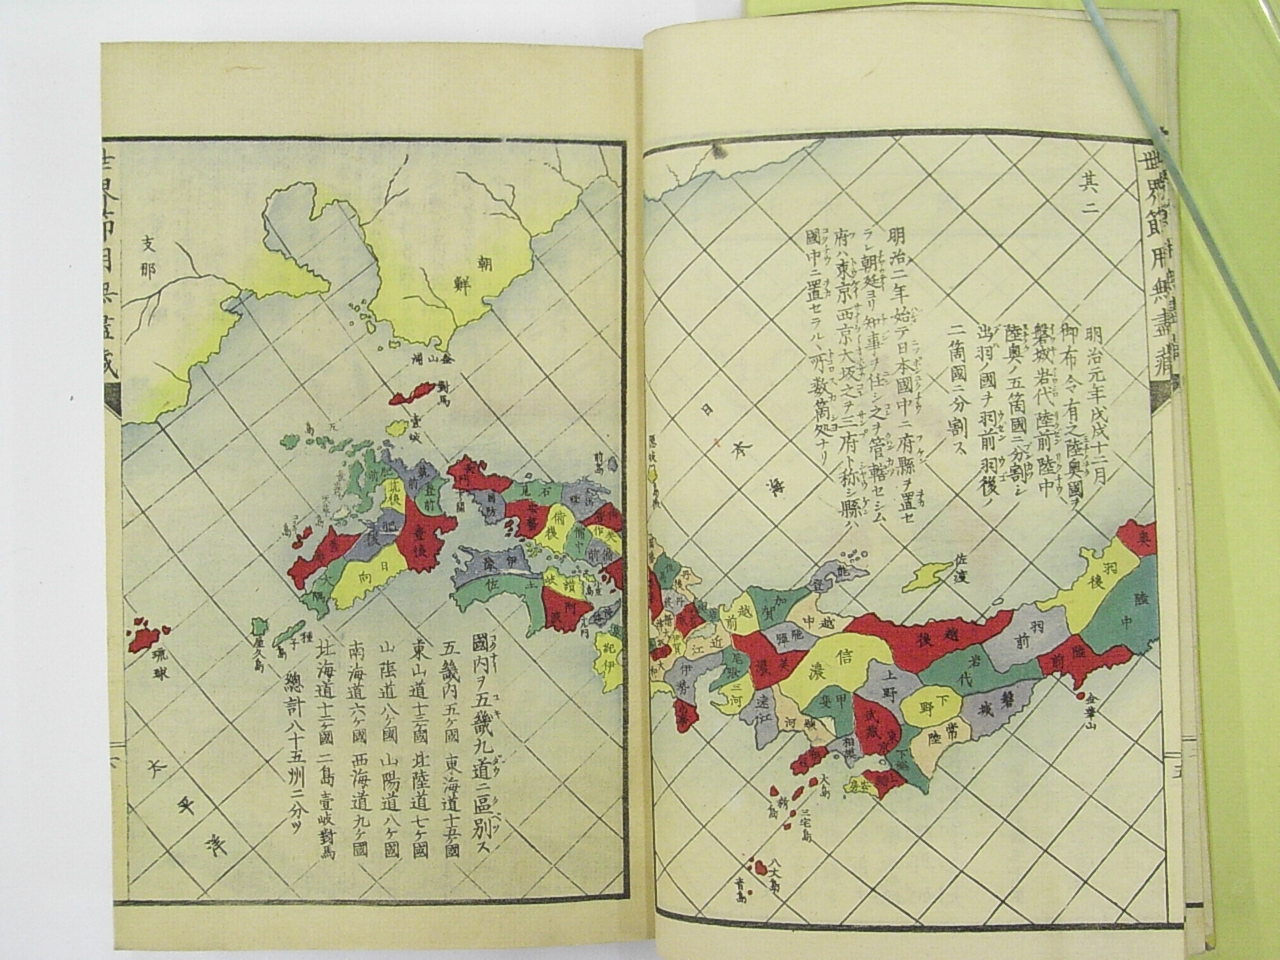 世界節用無盡藏
其二
明治元年戊戌十二月
御布令有之陸奧國ヲ
磐城岩代陸前陸中
陸奥ノ五箇國ニ分割シ
出羽ノ國ヲ羽前羽後ノ
二箇國ニ分割ス
明治二年始テ日本國中ニ府縣ヲ置セ
ラレ朝廷ヨリ知事ヲ任シ之ヲ管轄セシム
府ハ東京西京大坂之ヲ三府ト称シ縣ハ
國中ニ置セラルヽ所数箇処ナリ
日本海
佐渡
奥
羽後
陸中
羽前
陸前
金華山
岩代
磐城
越後
上野
下野
常陸
信濃
越中
能登
加賀
越前
飛騨
美濃
甲斐
武蔵
東京
下総
相模
駿河
遠江
三河
尾張
近江
伊勢
安房
大島
新島
三宅島
八丈島
青島
五
支那
朝鮮
釜山浦
對馬
壹岐
前島
筑前
筑後
豊前
豊後
肥前
肥後
日向
大隅
長門
周防
石見
安藝
備後
備中
伊豫
土佐
讃岐
阿波
紀伊
種子島
屋久島
琉球
太平洋
國内ヲ五畿九道ニ區別ス
五畿内五ケ國 東海道十五ケ國
東山道十三ケ國 北陸道七ケ國
山陰道八ケ國 山陽道八ケ國
南海道六ケ國 西海道九ケ國
北海道十一ケ國 二島壹岐對馬
總計八十五洲ニ分ツ
世界節用無盡藏